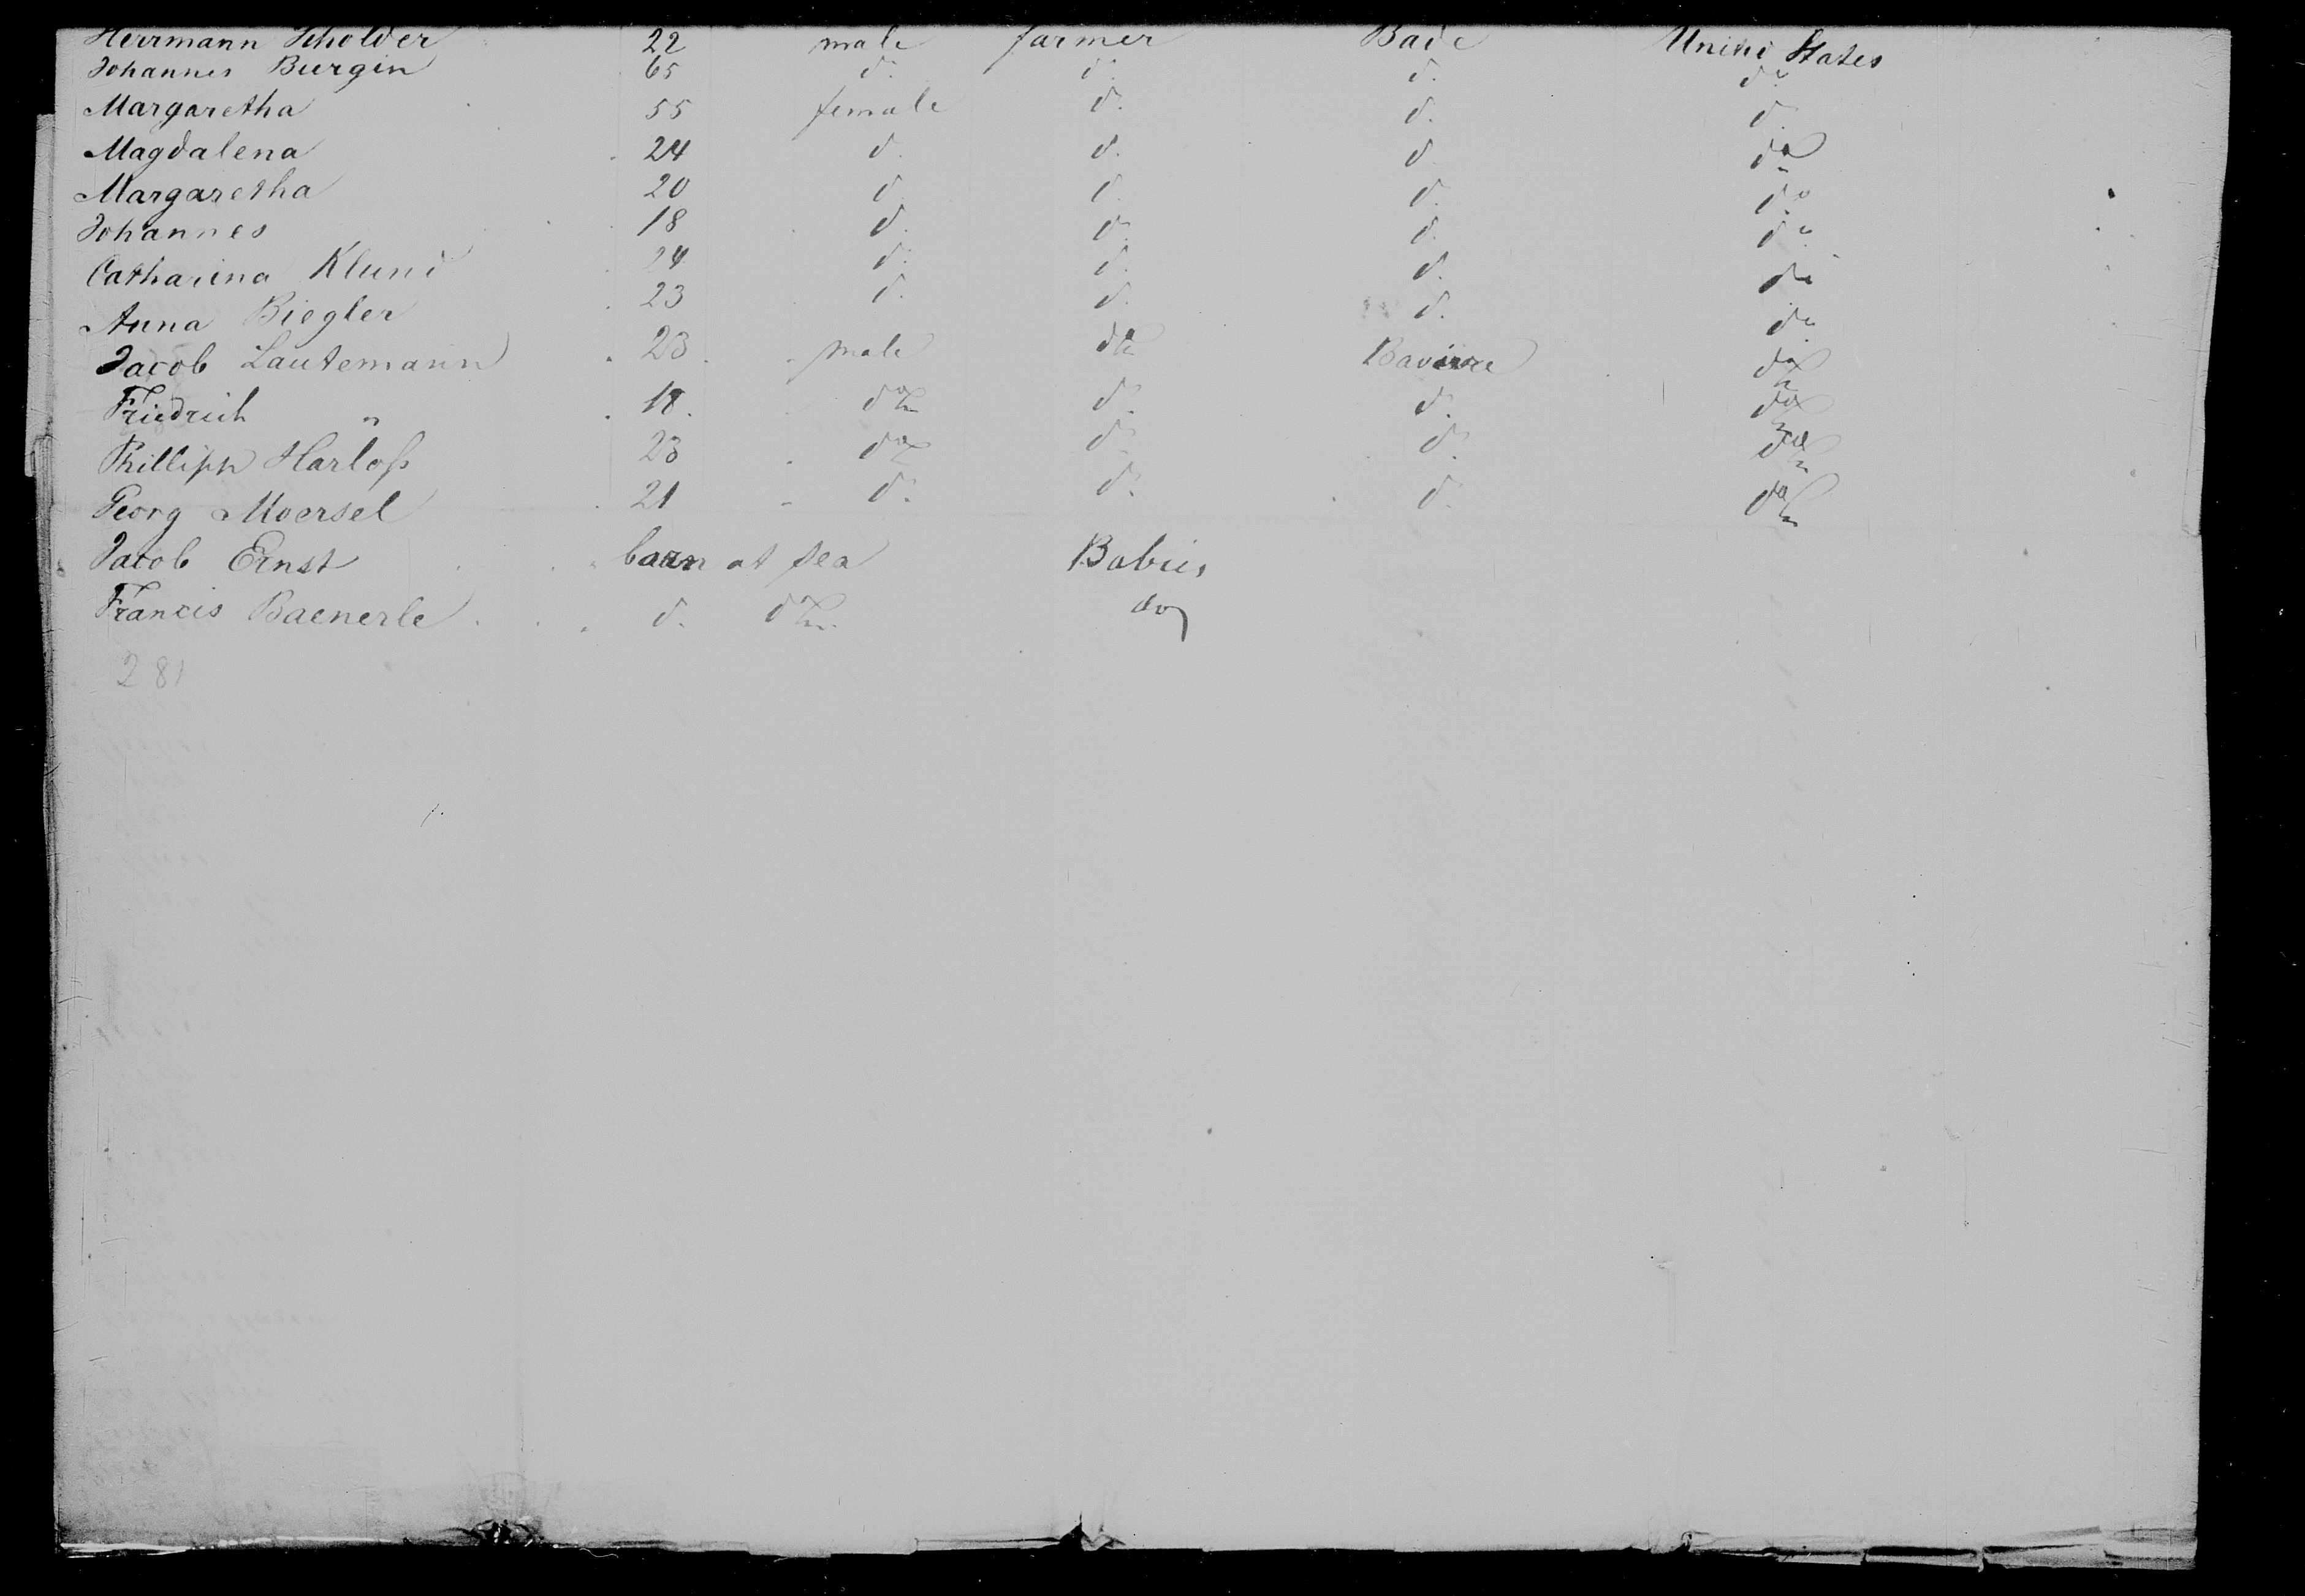 Herrmann Scholder 22 male farmer Bade United States
Johannes Burgin 65 do. do. do. do.
Margaretha 55 female do. do. do.
Magdalena 24 do. do. do. do.
Margaretha 20 do. do. do. do.
Johannes 18 do. do. do. do.
Catharina Klund 24 do. do. do. do.
Anna Biegler 23 do. do. do. do.
Jacob Lautemann 23 male do. Baviere do.
Friedrich " 18 do. do. do. do.
Phillipp Harloß 23 do. do. do. do.
Georg Moersel 21 do. do. do. do.
Jacob Ernst born at sea Babies
Francis Baenerle do. do. do
281